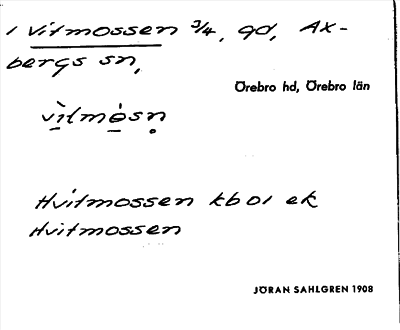 1 Vitmossen 3/4, gd, Ax-
bergs sn,
Örebro hd, Örebro län
vìtmòsn
Hvitmossen kb 01 ek
Hvitmossen
JÖRAN SAHLGREN 1908